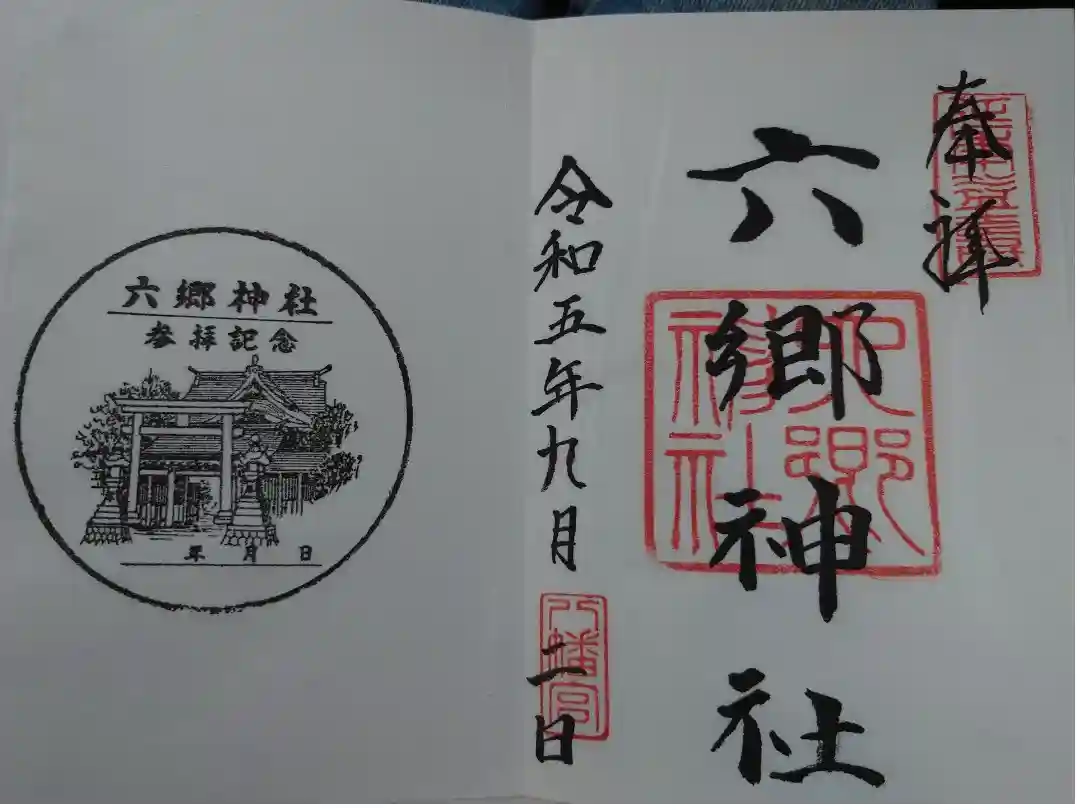 奉拝
六郷神社
六郷神社
令和五年九月二日
八幡宮
六郷神社
参拝記念
年 月 日